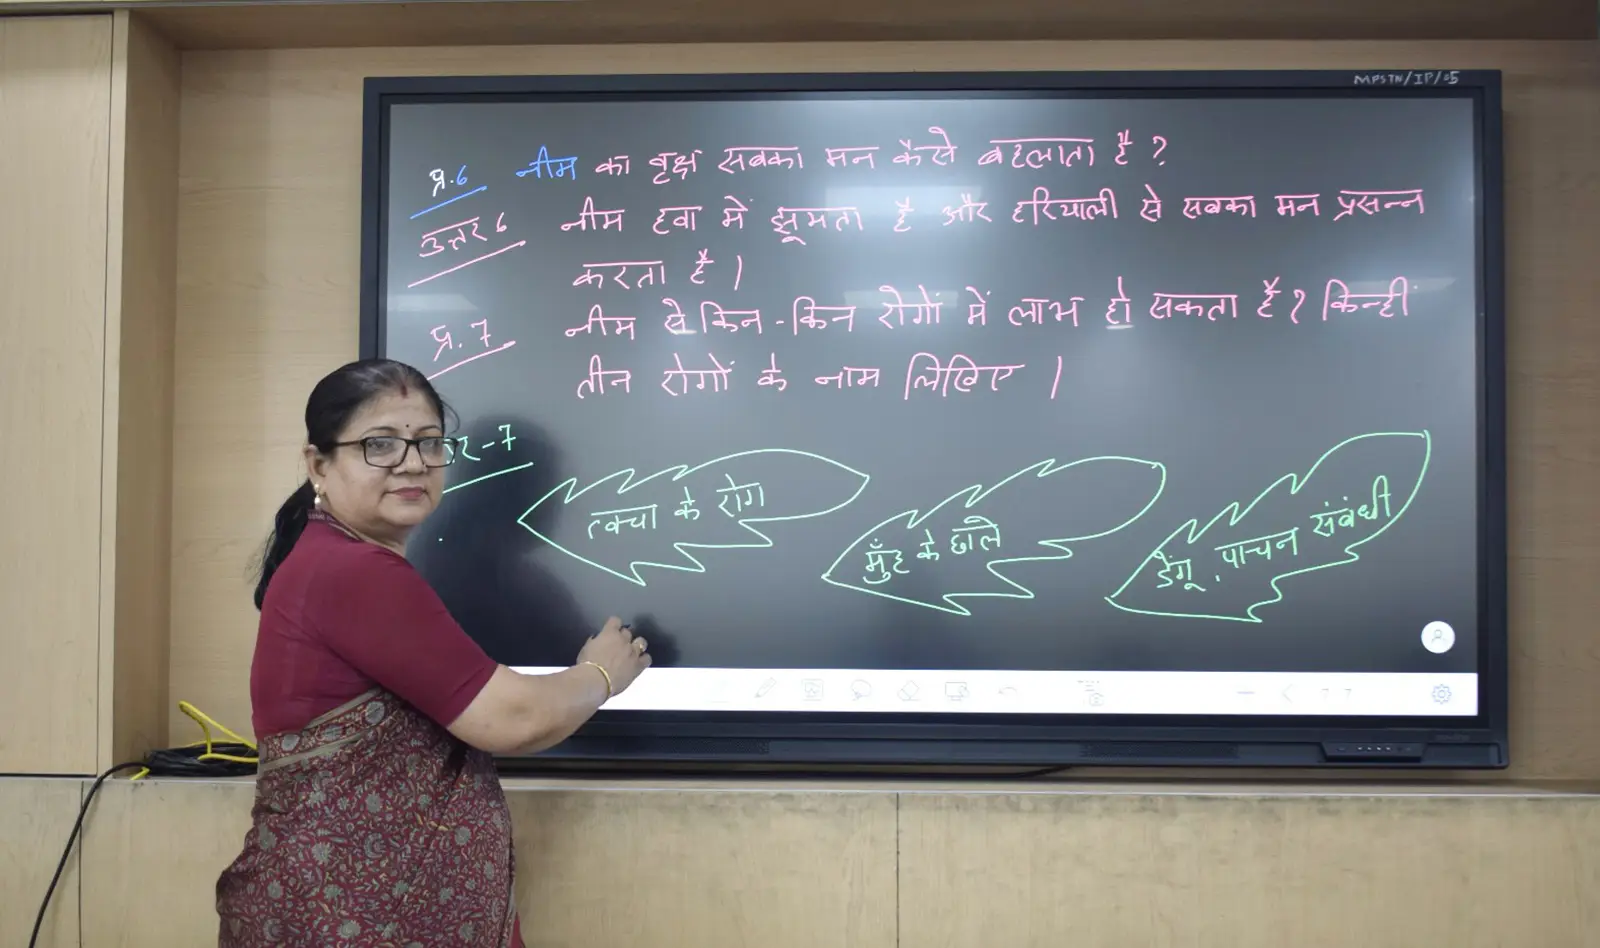 MPSTN/IP/05
प्र.6 नीम का वृक्ष सबका मन कैसे बहलाता है ?
उत्तर 6 नीम हवा में झूमता है और हरियाली से सबका मन प्रसन्न
करता है ।
प्र.7 नीम से किन-किन रोगों में लाभ हो सकता है ? किन्हीं
तीन रोगों के नाम लिखिए ।
-7
त्वचा के रोग
मुँह के छाले
डेंगू, पाचन संबंधी